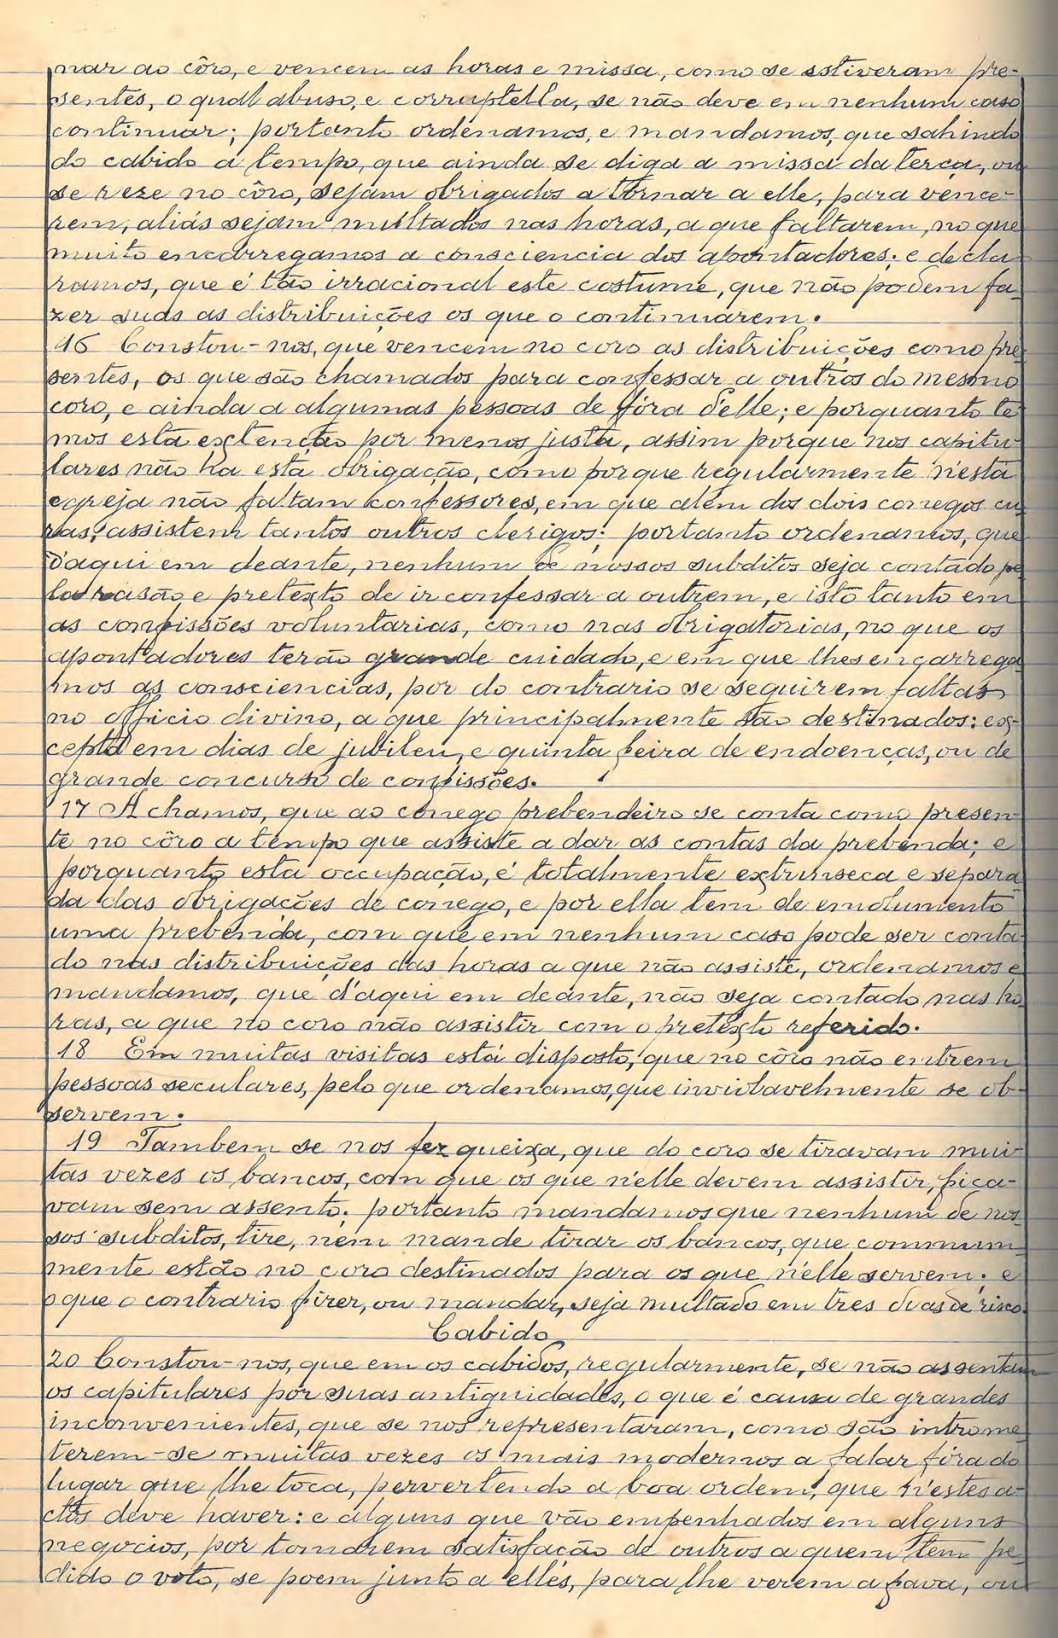 nar ao côro, e vencem as horas e missa, como se estiveram pre-
sentes, o qual abuso, e corruptella, se não deve em nenhum caso
continuar; portanto ordenamos, e mandamos, que sahindo
do cabido a tempo, que ainda se diga a missa da terça, ou
se reze no côro, sejam obrigados a tornar a elle, para vence-
rem, aliás sejam multados nas horas, a que faltarem, no que
muito encarregamos a consciencia dos apontadores; e decla-
ramos, que é tão irracional este costume, que não podem fa-
zer suas as distribuições os que o continuarem.
16 Constou-nos, que vencem no coro as distribuições como pre-
sentes, os que são chamados para confessar a outros do mesmo
coro, e ainda a algumas pessoas de fóra d'elle; e porquanto te-
mos esta extenção por menos justa, assim porque nos capitu-
lares não ha esta obrigação, como porque regularmente n'esta
egreja não faltam confessores, em que além dos dois conegos cu-
ras, assistem tantos outros clerigos; portanto ordenamos, que
d'aqui em deante, nenhum de nossos subditos seja contado pe-
la rasão e pretexto de ir confessar a outrem, e isto tanto em
as confissões voluntarias, como nas obrigatorias, no que os
apontadores terão grande cuidado, e em que lhes encarrega-
mos as consciencias, por do contrario se seguirem faltas
no officio divino, a que principalmente são destinados: ex-
cepto em dias de jubileu, e quinta feira de endoenças, ou de
grande concurso de confissões.
17 Achamos, que ao conego prebendeiro se conta como presen-
te no côro a tempo que assiste a dar as contas da prebenda; e
porquanto esta occupação, é totalmente extrinseca e separa-
da das obrigações de conego, e por ella tem de emolumento
uma prebenda, com que em nenhum caso pode ser conta-
do nas distribuições das horas a que não assiste, ordenamos e
mandamos, que d'aqui em deante, não seja contado nas ho-
ras, a que no coro não assistir com o pretexto referido.
18 Em muitas visitas está disposto, que no côro não entrem
pessoas seculares, pelo que ordenamos, que inviolavelmente se ob-
servem.
19 Tambem se nos fez queixa, que do coro se tiravam mui-
tas vezes os bancos, com que os que n'elle devem assistir, fica-
vam sem assento; portanto mandamos que nenhum de nos-
sos subditos, tire, nem mande tirar os bancos, que commum-
mente estão no coro destinados para os que n'elle servem; e
o que o contrario fizer, ou mandar, seja multado em tres dias de risco.
Cabido
20 Constou-nos, que em os cabidos, regularmente, se não assentam
os capitulares por suas antiguidades, o que é causa de grandes
inconvenientes, que se nos representaram, como são introme-
terem-se muitas vezes os mais modernos a falar fóra do
lugar que lhe toca, pervertendo a boa ordem, que n'estes a-
ctos deve haver: e alguns que vão empenhados em alguns
negocios, por tomarem satisfação de outros a quem tem pe-
dido o voto, se poem junto a elles, para lhe verem a fava, ou